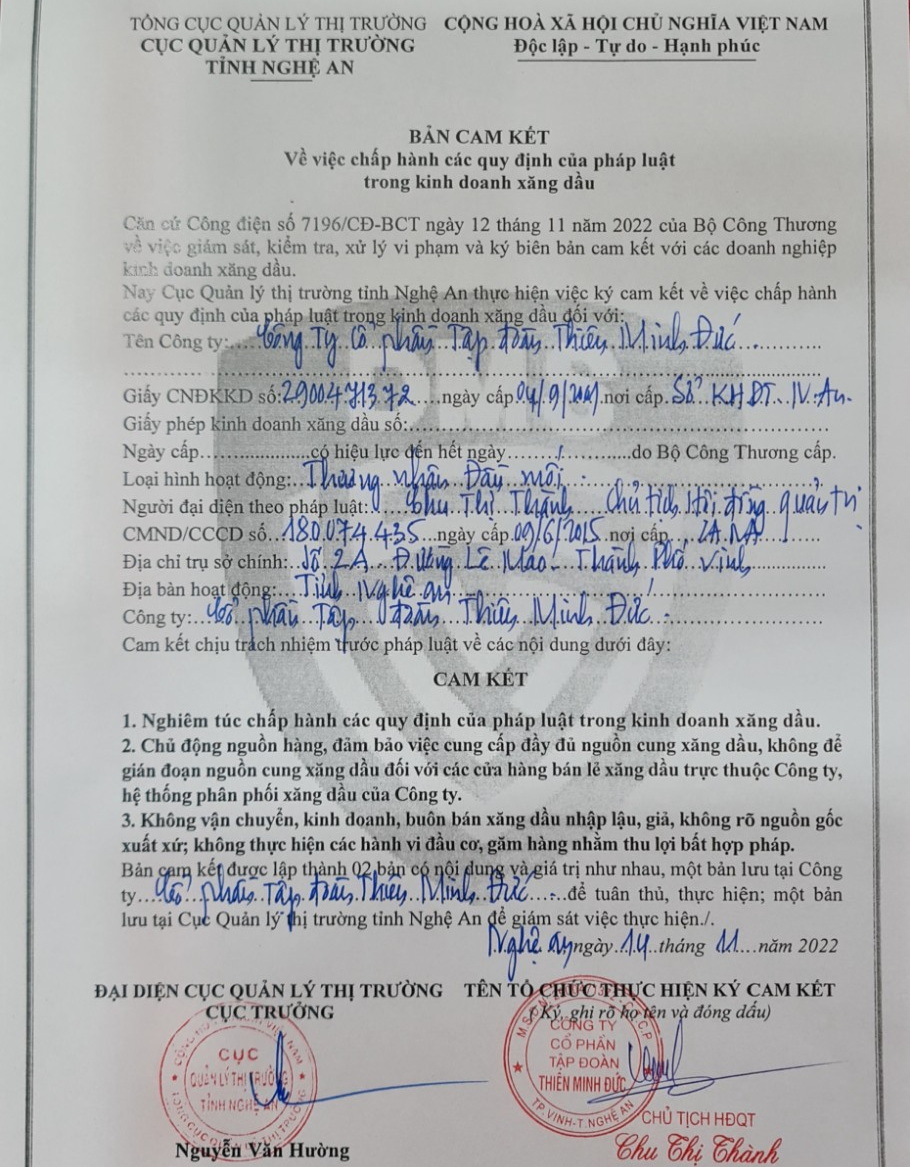 TỔNG CỤC QUẢN LÝ THỊ TRƯỜNG CỘNG HOÀ XÃ HỘI CHỦ NGHĨA VIỆT NAM
CỤC QUẢN LÝ THỊ TRƯỜNG Độc lập - Tự do - Hạnh phúc
TỈNH NGHỆ AN
BẢN CAM KẾT
Về việc chấp hành các quy định của pháp luật
trong kinh doanh xăng dầu
Căn cứ Công điện số 7196/CĐ-BCT ngày 12 tháng 11 năm 2022 của Bộ Công Thương
về việc giám sát, kiểm tra, xử lý vi phạm và ký biên bản cam kết với các doanh nghiệp
kinh doanh xăng dầu.
Nay Cục Quản lý thị trường tỉnh Nghệ An thực hiện việc ký cam kết về việc chấp hành
các quy định của pháp luật trong kinh doanh xăng dầu đối với:
Tên Công ty: Công Ty Cổ phần Tập đoàn Thiên Minh Đức
Giấy CNĐKKD số: 2900471372 ngày cấp 04/9/2001 nơi cấp Sở KHĐT N.An
Giấy phép kinh doanh xăng dầu số:
Ngày cấp có hiệu lực đến hết ngày / do Bộ Công Thương cấp.
Loại hình hoạt động: Thương nhân Đầu mối
Người đại diện theo pháp luật: Chu Thị Thành Chủ tịch Hội đồng quản trị
CMND/CCCD số 180.074.435 ngày cấp 09/6/2015 nơi cấp CA.NA
Địa chỉ trụ sở chính: Số 2A Đường Lê Mao - Thành Phố Vinh
Địa bàn hoạt động: Tỉnh Nghệ An
Công ty: Cổ phần Tập đoàn Thiên Minh Đức
Cam kết chịu trách nhiệm trước pháp luật về các nội dung dưới đây:
CAM KẾT
1. Nghiêm túc chấp hành các quy định của pháp luật trong kinh doanh xăng dầu.
2. Chủ động nguồn hàng, đảm bảo việc cung cấp đầy đủ nguồn cung xăng dầu, không để
gián đoạn nguồn cung xăng dầu đối với các cửa hàng bán lẻ xăng dầu trực thuộc Công ty,
hệ thống phân phối xăng dầu của Công ty.
3. Không vận chuyển, kinh doanh, buôn bán xăng dầu nhập lậu, giả, không rõ nguồn gốc
xuất xứ; không thực hiện các hành vi đầu cơ, găm hàng nhằm thu lợi bất hợp pháp.
Bản cam kết được lập thành 02 bản có nội dung và giá trị như nhau, một bản lưu tại Công
ty Cổ phần Tập đoàn Thiên Minh Đức để tuân thủ, thực hiện; một bản
lưu tại Cục Quản lý thị trường tỉnh Nghệ An để giám sát việc thực hiện./.
Nghệ An ngày 14 tháng 11 năm 2022
ĐẠI DIỆN CỤC QUẢN LÝ THỊ TRƯỜNG TÊN TỔ CHỨC THỰC HIỆN KÝ CAM KẾT
CỤC TRƯỞNG ( Ký, ghi rõ họ tên và đóng dấu)
CỤC
QUẢN LÝ THỊ TRƯỜNG
TỈNH NGHỆ AN
CÔNG TY
CỔ PHẦN
TẬP ĐOÀN
THIÊN MINH ĐỨC
TP.VINH-T.NGHỆ AN
CHỦ TỊCH HĐQT
Nguyễn Văn Hường Chu Thị Thành